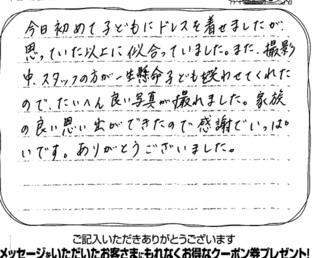 今日初めて子どもにドレスを着せましたが、
思っていた以上に似合っていました。また、撮影
中、スタッフの方が一生懸命子ども笑わせてくれた
ので、たいへん良い写真が撮れました。家族
の良い思い出ができたので感謝でいっぱ
いです。ありがとうございました。
ご記入いただきありがとうございます
メッセージをいただいたお客さまにもれなくお得なクーポン券プレゼント!